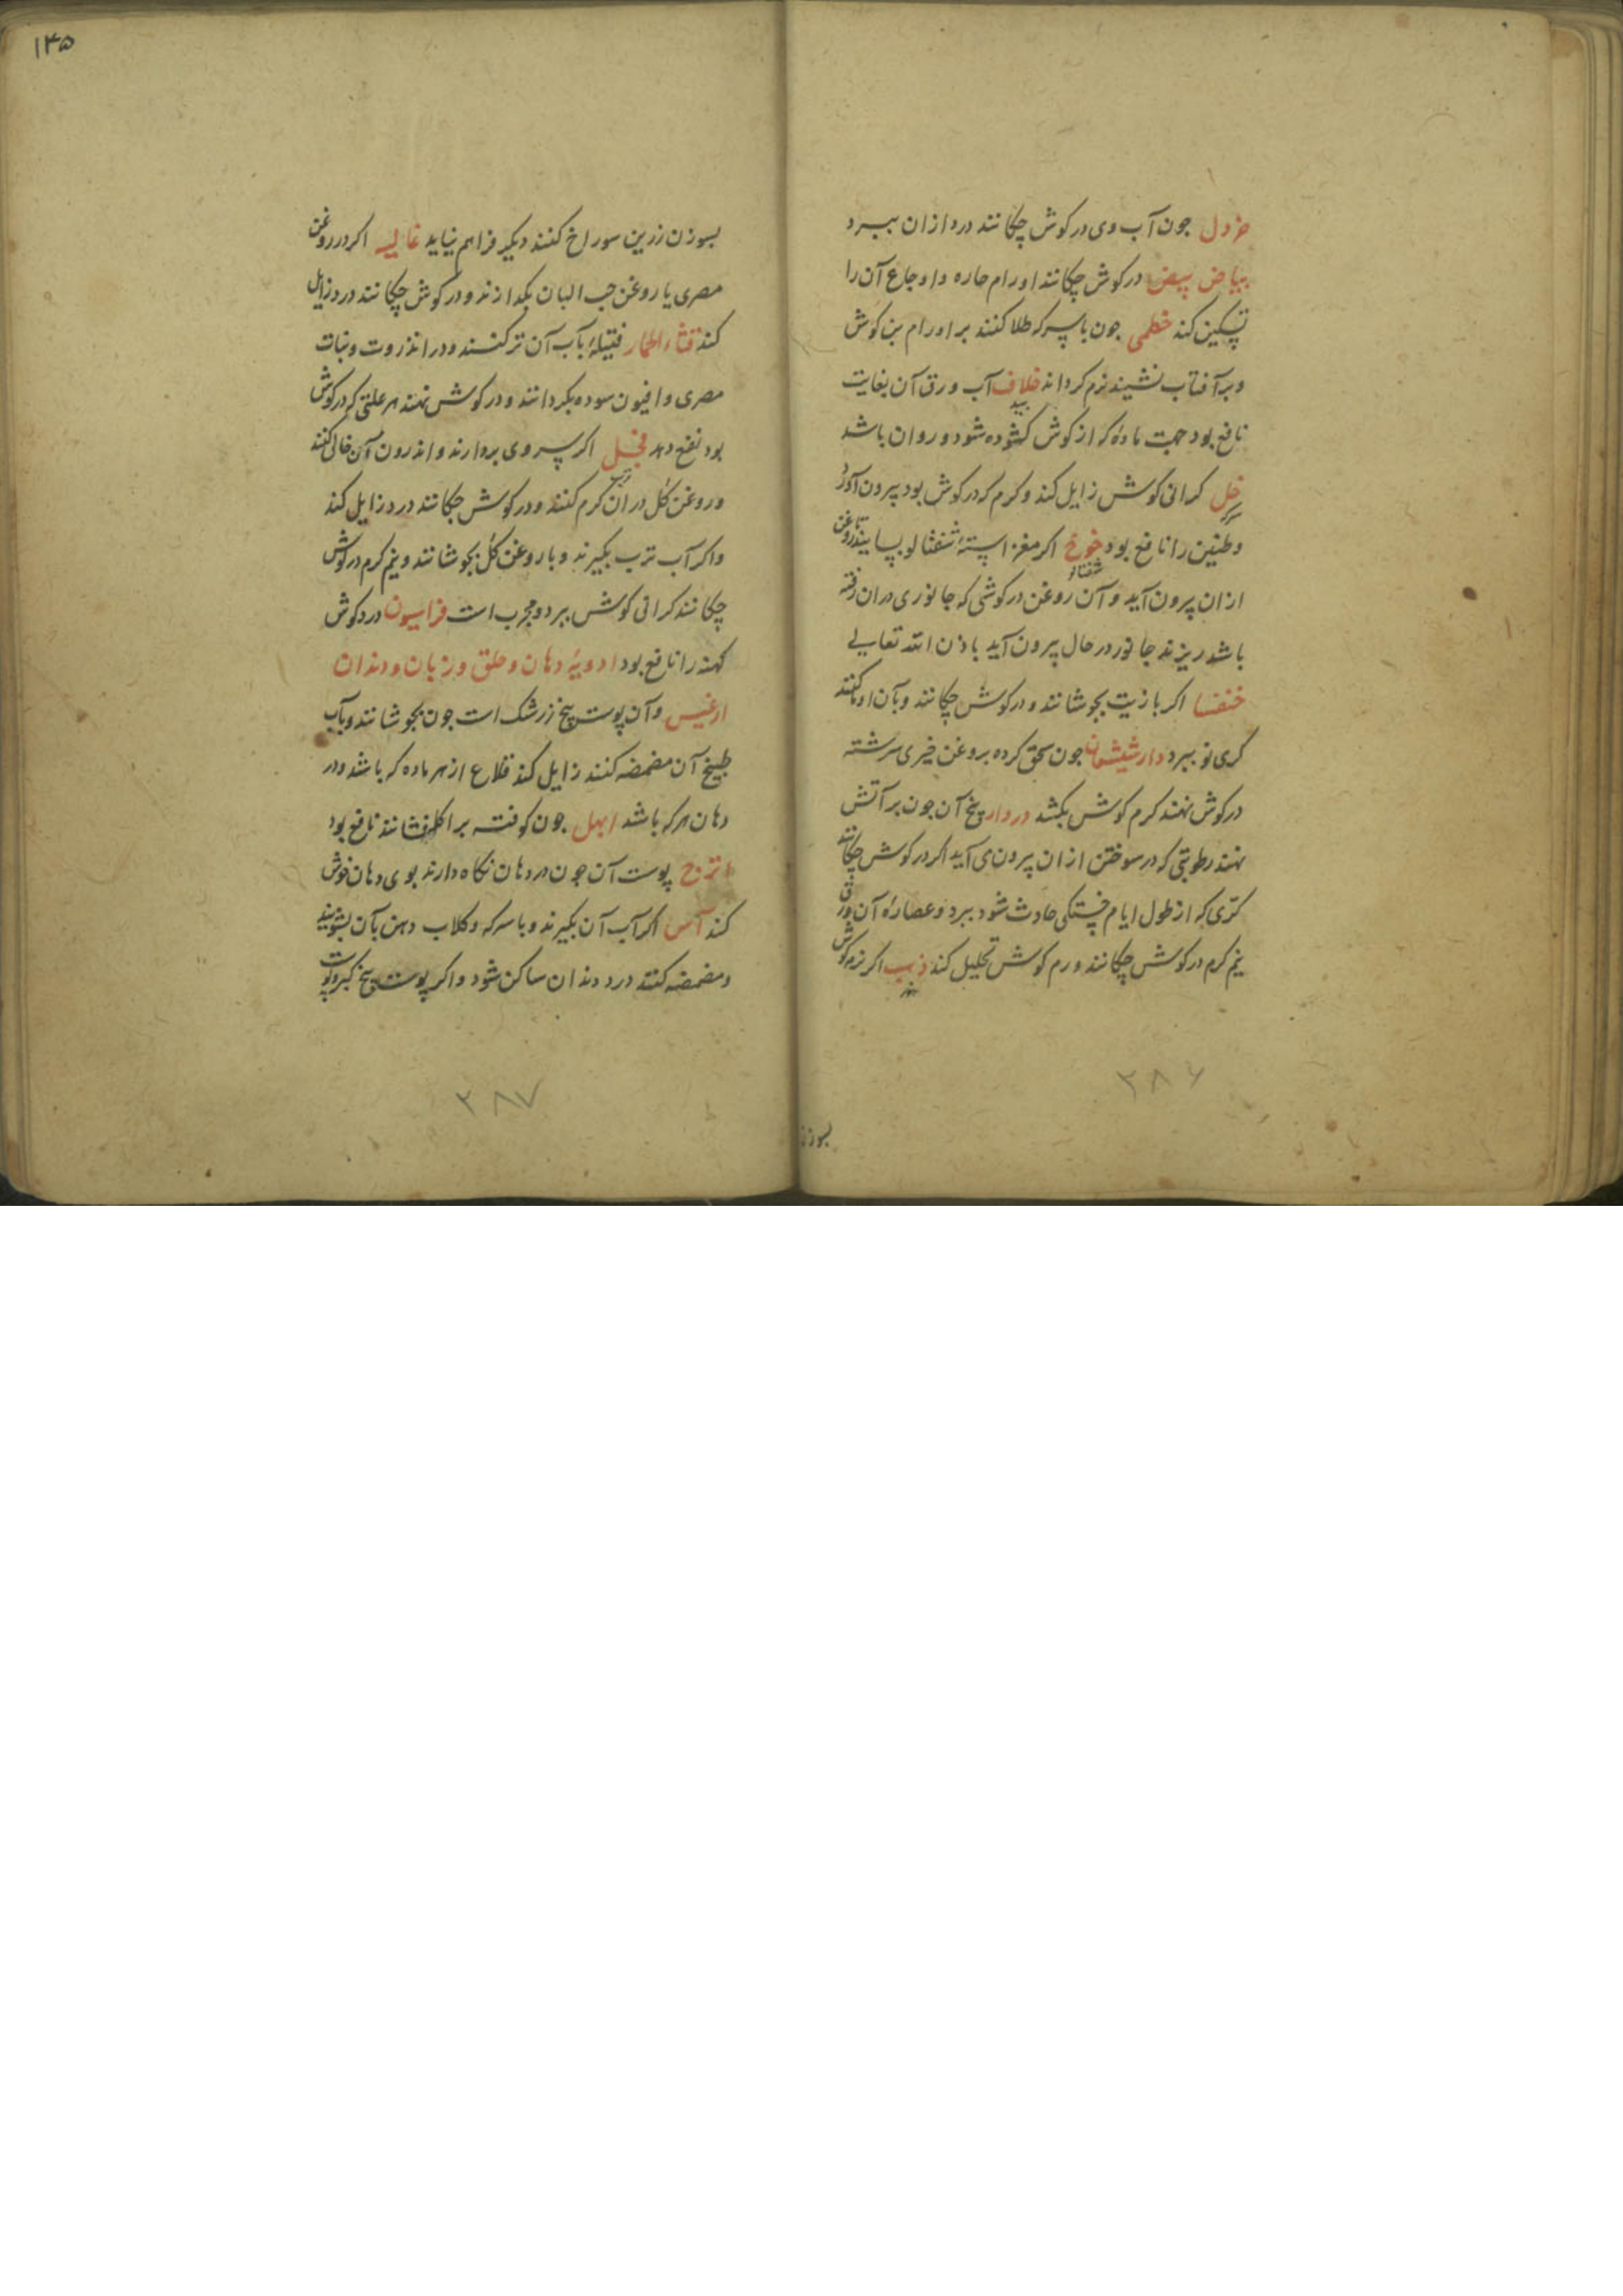 خردل جون آب وی در کوش چکانند درد ازان ببرد
بیاض بیض در کوش چکانند اورام حاره و اوجاع آن را
تسکین کند خطمی جون با سرکه طلا کنند بر اورام بن کوش
و بر آفتاب نشیند نرم کرداند خلاف آب ورق آن بغایت
بید
نافع بود جهت مادهٔ که از کوش کشوده شود و روان باشد
خل کرانی کوش زایل کند و کرم که در کوش بود بیرون آورد
سرکه
و طنین را نافع بود خوخ اکر مغز استهٔ شفتالو بسایند تا روغن
شفتالو
ازان بیرون آید و آن روغن در کوشی که جانوری دران رفته
باشد ریزند جانور در حال بیرون آید باذن الله تعالی
خنفسا اکر با زیت بجوشانند و در کوش چکانند و بآن ادمان کنند
کری نو ببرد دارشیشعان جون سحق کرده بروغن خیری سرشته
در کوش نهند کرم کوش بکشد دردار بیخ آن جون بر آتش
نهند رطوبتی که در سوختن ازان بیرون می آید اکر در کوش چکانند
کری که از طول ایام خستکی حادث شود ببرد و عصارهٔ آن ورق
نیم کرم در کوش چکانند ورم کوش تحلیل کند ذهب اکر نرمه کوش
زر
بسوزن
۲۸۶
۱۴۵
بسوزن زرین سوراخ کنند دیکر فراهم نیاید غالیه اکر در روغن
مصری یا روغن حب البان بکدازند و در کوش چکانند درد زایل
کند قثاء الحمار فتیلهٔ بآب آن تر کنند و در انذروت و نبات
مصری و افیون سوده بکردانند و در کوش نهند هر علتی که در کوش
بود نفع دهد فجل اکر سر وی بردارند و اندرون آن خالی کنند
ترب
و روغن کل در آن کرم کنند و در کوش چکانند درد زایل کند
و اکر آب ترب بکیرند و با روغن کل بجوشانند و نیم کرم در کوش
چکانند کرانی کوش ببرد و مجرب است فراسیون درد کوش
کهنه را نافع بود ادویهٔ دهان و حلق و زبان و دندان
ارغیس و آن پوست بیخ زرشک است جون بجوشانند و بآب
طبیخ آن مضمضه کنند زایل کند قلاع از هر ماده که باشد و در
دهان هر که باشد ابهل جون کوفته بر اکله فشانند نافع بود
اترج پوست آن جون در دهان نکاه دارند بوی دهان خوش
کند آس اکر آب آن بکیرند و با سرکه و کلاب دهن بآن بشویند
و مضمضه کنند درد دندان ساکن شود و اکر پوست بیخ کبر و پوست
۲۸۷